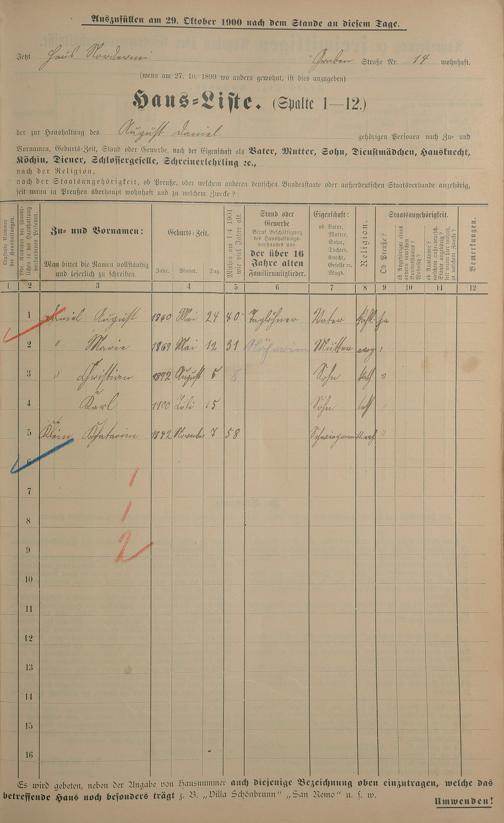 Auszufüllen am 29. Oktober 1900 nach dem Stande an diesem Tage.
Jetzt Haus Graben Straße Nr. 14 wohnhaft.
(wenn am 27. 10. 1899 wo anders gewohnt, ist dies anzugeben)
Haus-Liste. (Spalte 1—12.)
der zur Haushaltung des August Daniel gehörigen Personen nach Zu- und
Vornamen, Geburts-Zeit, Stand oder Gewerbe, nach der Eigenschaft als Vater, Mutter, Sohn, Dienstmädchen, Hausknecht,
Köchin, Diener, Schlossergeselle, Schreinerlehrling ꝛc.,
nach der Religion,
nach der Staatsangehörigkeit, ob Preuße, oder welchem anderen deutschen Bundesstaate oder außerdeutschen Staatsverbande angehörig,
seit wann in Preußen überhaupt wohnhaft und zu welchem Zwecke?
Zu- und Vornamen:
Man bittet die Namen vollständig und leserlich zu schreiben.
Geburts-Zeit.
Jahr. Monat. Tag.
Stand oder Gewerbe
der über 16 Jahre alten Familienmitglieder.
Eigenschaft:
ob Vater, Mutter, Sohn, Tochter,
Religion.
Ob Preuße?
Staatsangehörigkeit.
Bemerkungen.
1. 2 3 4 5 6 7 8 9 10 11 12
1 Daniel August 1860 Mai 24 40 Taglöhner Vater kath. ja
2 " Marie 1869 Mai 12 31 Mutter "
3 " Christian 1892 August 5 8 Sohn "
4 Karl 1900 Juli 15 Sohn "
5 Klein Katharina 1842 November 7 58 "
6
7 1
8 1
9 2
10
11
12
13
14
15
16
Es wird gebeten, neben der Angabe von Hausnummer auch diejenige Bezeichnung oben einzutragen, welche das
betreffende Haus noch besonders trägt z. B. „Villa Schönbrunn" „San Remo" u. s. w.
Umwenden!